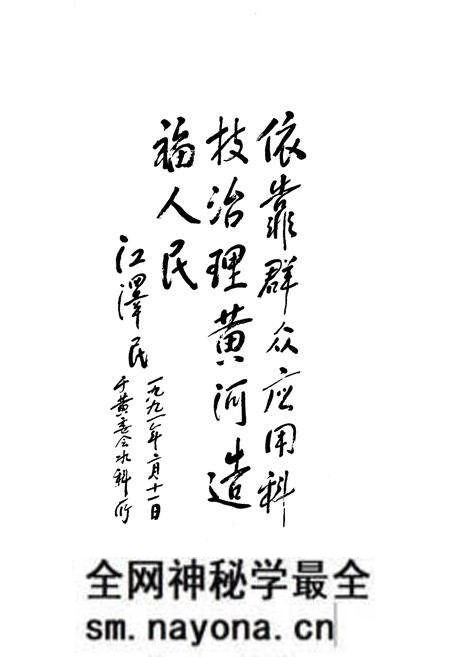 依靠群众应用科
技治理黄河造
福人民
江澤民
一九九一年二月十一日
于黄委会水科所
全网神秘学最全
sm.nayona.cn